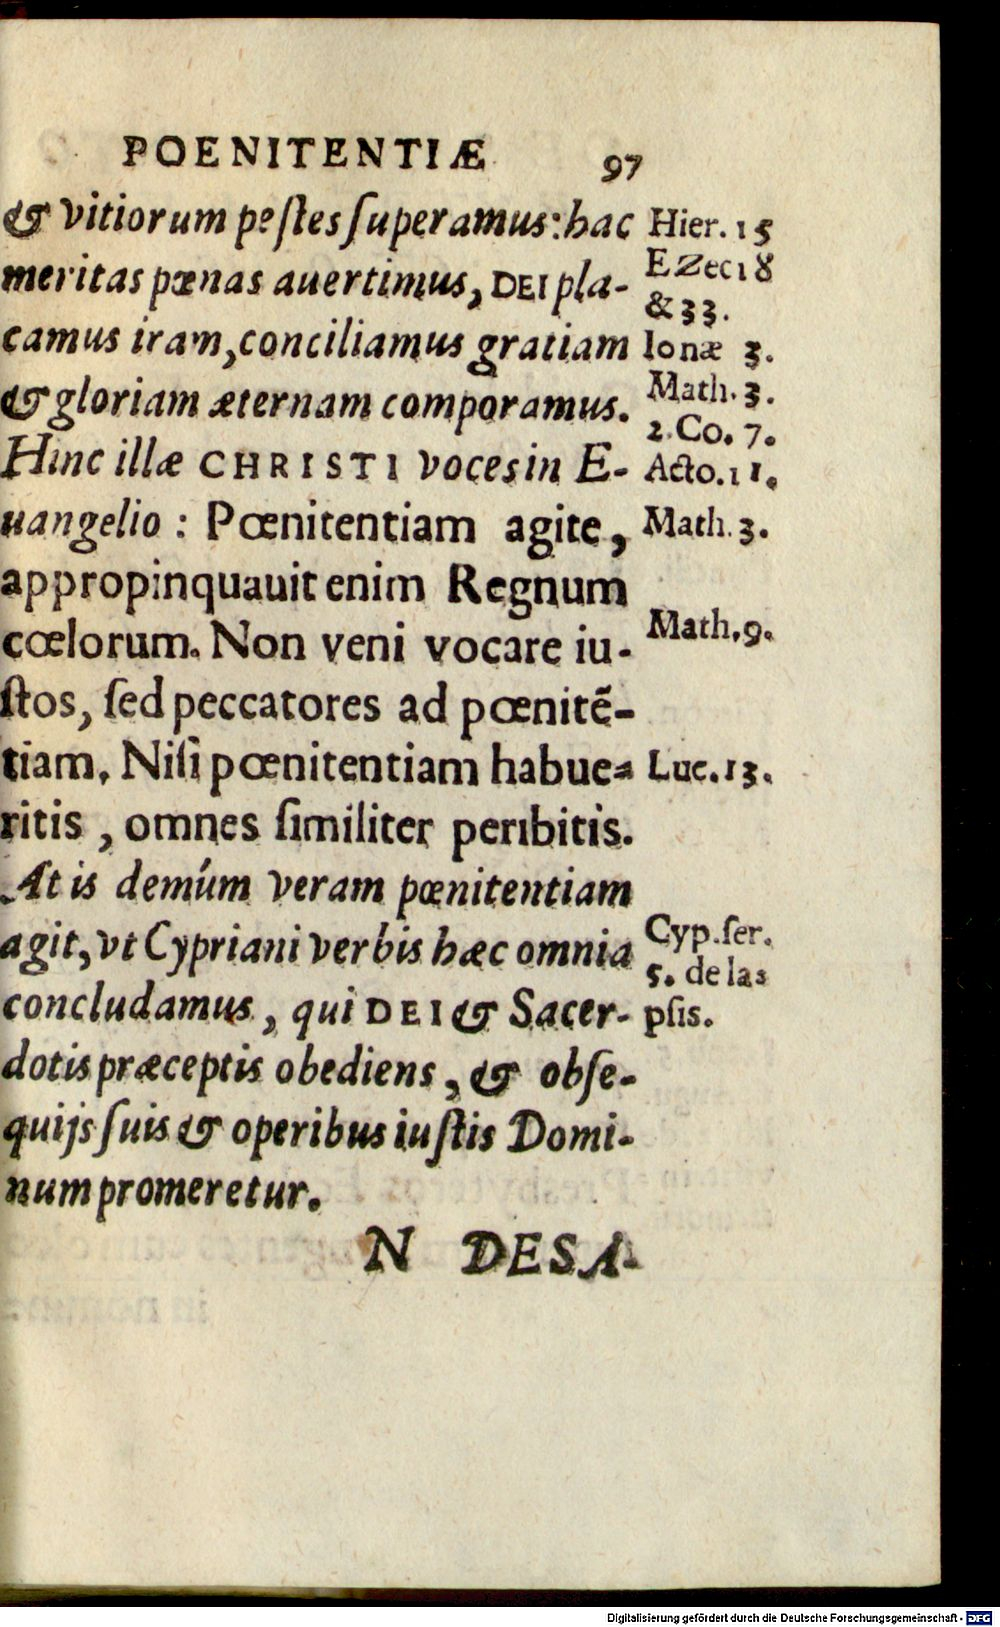 POENITENTIÆ 97
& vitiorum peſtes ſuperamus: hac
meritas pœnas auertimus, DEI pla-
camus iram, conciliamus gratiam
& gloriam æternam comporamus.
Hinc illæ CHRISTI voces in E-
uangelio : Pœnitentiam agite,
appropinquauit enim Regnum
cœlorum. Non veni vocare iu-
ſtos, ſed peccatores ad pœnitẽ-
tiam. Niſi pœnitentiam habue-
ritis , omnes ſimiliter peribitis.
At is demúm veram pœnitentiam
agit, vt Cypriani verbis hæc omnia
concludamus, qui DEI & Sacer-
dotis præceptis obediens, & obſe-
quijs ſuis & operibus iuſtis Domi-
num promeretur.
N DESA-
Hier. 15
Ezec 18
& 33.
Ionæ 3.
Math. 3.
2. Co. 7.
Acto. 11.
Math. 3.
Math. 9.
Luc. 13.
Cyp. ſer.
5. de la-
pſis.
Digitalisierung gefördert durch die Deutsche Forschungsgemeinschaft - DFG